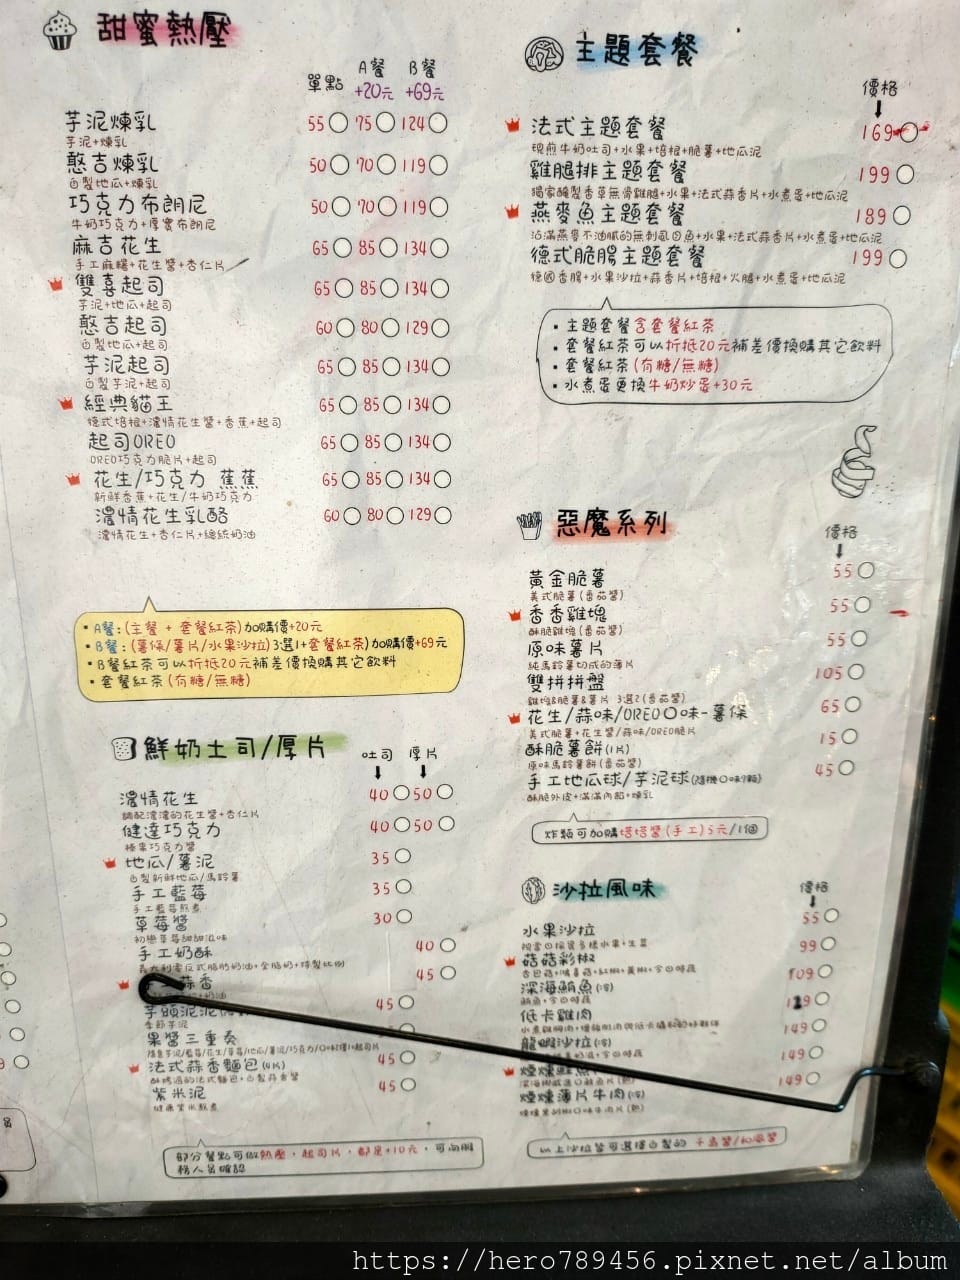 甜蜜熱壓
單點 A餐 +20元 B餐 +69元
芋泥煉乳 55 75 124
芋泥+煉乳
憨吉煉乳 50 70 119
自製地瓜+煉乳
巧克力布朗尼 50 70 119
牛奶巧克力+厚實布朗尼
麻吉花生 65 85 134
手工麻糬+花生醬+杏仁片
雙喜起司 65 85 134
芋泥+地瓜+起司
憨吉起司 60 80 129
自製地瓜+起司
芋泥起司 65 85 134
自製芋泥+起司
經典貓王 65 85 134
德式培根+濃情花生醬+香蕉+起司
起司OREO 65 85 134
OREO巧克力脆片+起司
花生/巧克力 蕉蕉 65 85 134
新鮮香蕉+花生/牛奶巧克力
濃情花生乳酪 60 80 129
濃情花生+杏仁片+總統奶油
• A餐:(主餐 + 套餐紅茶)加購價+20元
• B餐:(薯條/薯片/水果沙拉)3選1+套餐紅茶)加購價+69元
• B餐紅茶可以折抵20元補差價換購其它飲料
• 套餐紅茶(有糖/無糖)
鮮奶土司/厚片
吐司 厚片
濃情花生 40 50
調配濃濃的花生醬+杏仁片
健達巧克力 40 50
榛果巧克力醬
地瓜/薯泥 35
自製新鮮地瓜/馬鈴薯
手工藍莓 35
手工藍莓熬煮
草莓醬 30
初戀草莓甜甜滋味
手工奶酥 40
蒜香 45
芋頭泥泥 45
季節芋泥
果醬三重奏
法式蒜香麵包(4片) 45
酥烤過的法式麵包+自製蒜香醬
紫米泥 45
健康紫米熬煮
部分餐點可做熱壓，起司片，都是+10元，可向服
務人員確認
主題套餐
價格
法式主題套餐 169
現煎牛奶吐司+水果+培根+脆薯+地瓜泥
雞腿排主題套餐 199
獨家醃製香草無骨雞腿+水果+法式蒜香片+水煮蛋+地瓜泥
燕麥魚主題套餐 189
沾滿燕麥不油膩的無刺虱目魚+水果+法式蒜香片+水煮蛋+地瓜泥
德式脆腸主題套餐 199
德國香腸+水果沙拉+蒜香片+培根+火腿+水煮蛋+地瓜泥
• 主題套餐含套餐紅茶
• 套餐紅茶可以折抵20元補差價換購其它飲料
• 套餐紅茶(有糖/無糖)
• 水煮蛋更換牛奶炒蛋+30元
惡魔系列
價格
黃金脆薯 55
美式脆薯(番茄醬)
香香雞塊 55
酥脆雞塊(番茄醬)
原味薯片 55
純馬鈴薯切成的薄片
雙拼拼盤 105
雞塊&脆薯&薯片 3選2(番茄醬)
花生/蒜味/OREO口味-薯條 65
美式脆薯+花生醬/蒜味/OREO脆片
酥脆薯餅(1片) 15
原味馬鈴薯餅(番茄醬)
手工地瓜球/芋泥球(隨機口味9顆) 45
酥脆外皮+滿滿內餡+煉乳
炸類可加購塔塔醬(手工)5元/1個
沙拉風味
價格
水果沙拉 55
菇菇彩椒 99
杏鮑菇+鴻喜菇+紅椒+黃椒+今日時蔬
深海鮪魚(冷) 109
鮪魚+今日時蔬
低卡雞肉 119
龍蝦沙拉(冷) 149
煙燻鮭魚 149
煙燻薄片牛肉(冷) 149
以上沙拉皆可選擇自製的 千島醬/和風醬
https://hero789456.pixnet.net/album